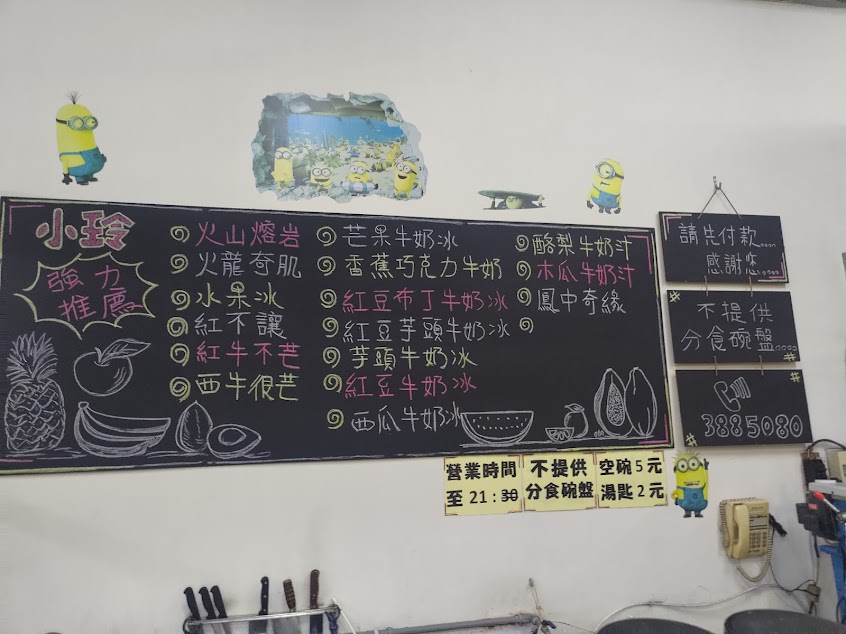 小玲
強力
推薦
火山熔岩
火龍奇肌
水果冰
紅不讓
紅牛不芒
西牛很芒
芒果牛奶冰
香蕉巧克力牛奶
紅豆布丁牛奶冰
紅豆芋頭牛奶冰
芋頭牛奶冰
紅豆牛奶冰
西瓜牛奶冰
酪梨牛奶汁
木瓜牛奶汁
鳳中奇緣
請先付款....
感謝您....
不提供
分食碗盤....
3885080
營業時間
至 21:30
不提供
分食碗盤
空碗5元
湯匙2元